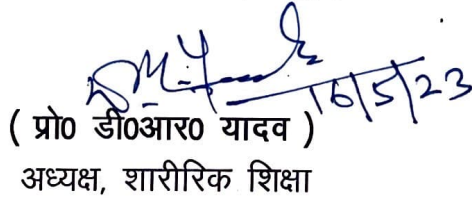 16/5/23
( प्रो0 डी0आर0 यादव )
अध्यक्ष, शारीरिक शिक्षा